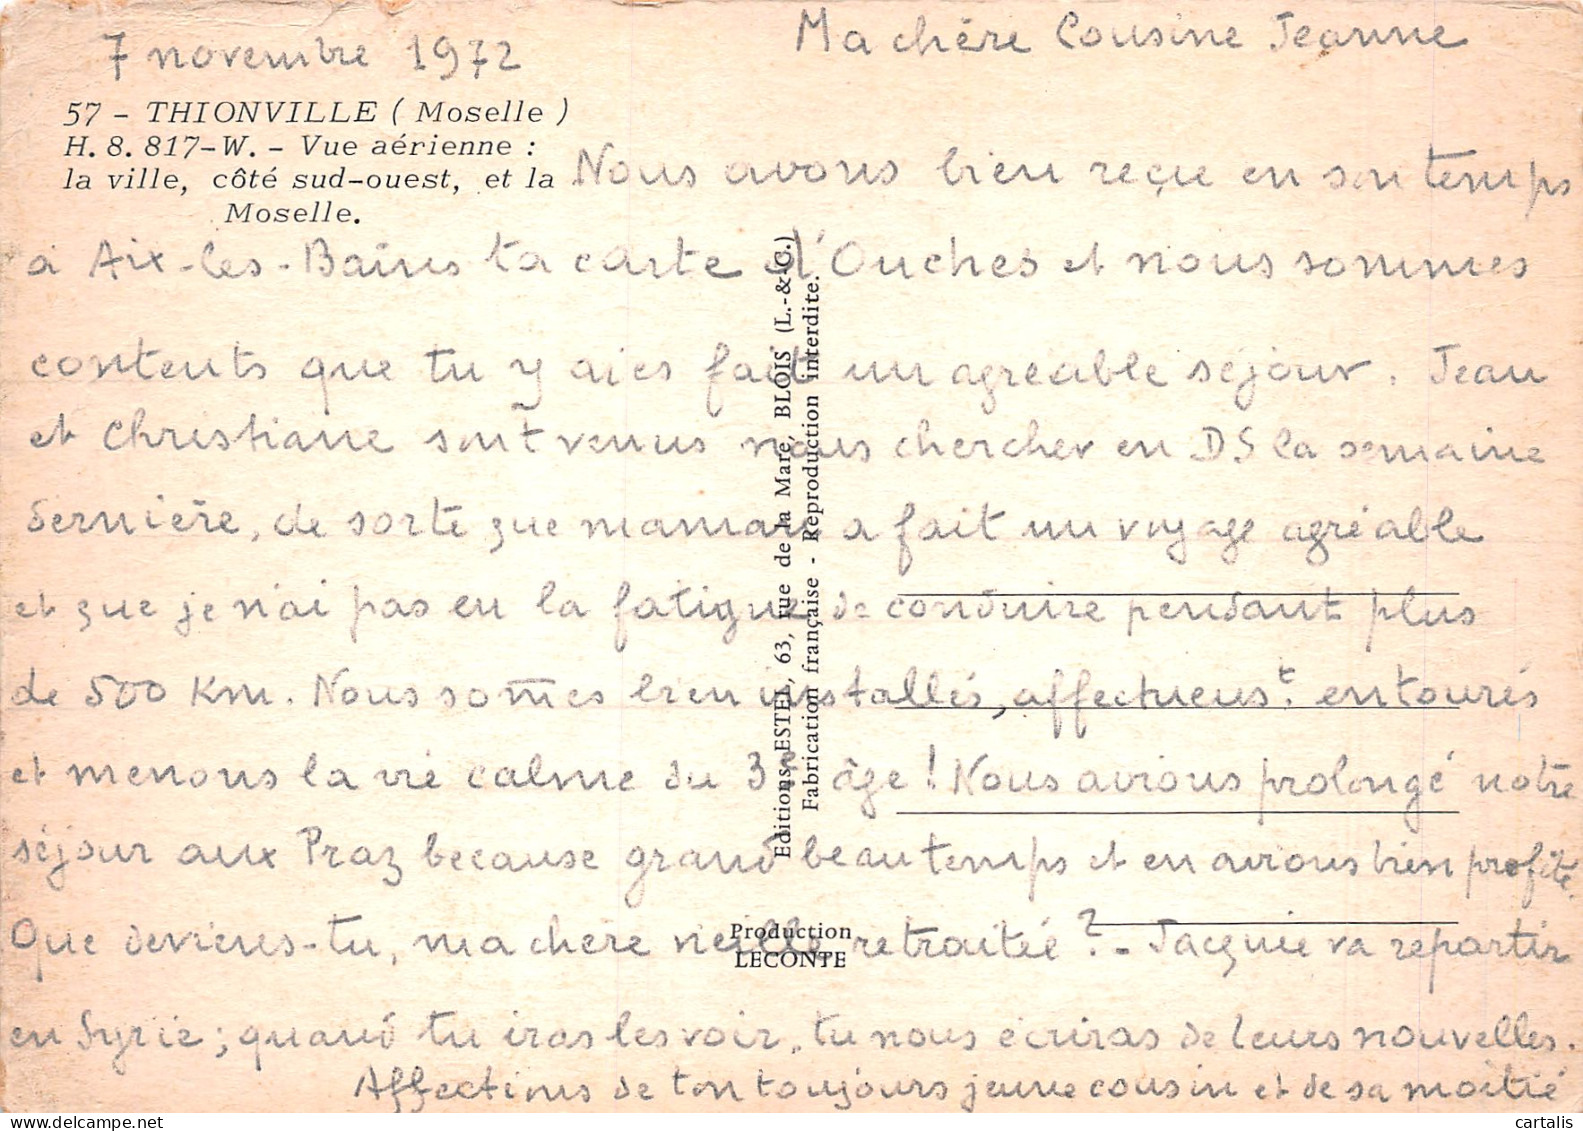 7 novembre 1972
Ma chère Cousine Jeanne
57 - THIONVILLE ( Moselle )
H. 8. 817-W. - Vue aérienne :
la ville, côté sud-ouest, et la
Moselle.
Nous avons bien reçue en son temps
à Aix-les-Bains ta carte d'Ouches et nous sommes
contents que tu y aies fait un agréable séjour. Jean
et Christiane sont venus nous chercher en DS la semaine
dernière, de sorte que maman a fait un voyage agréable
et que je n'ai pas eu la fatigue de conduire pendant plus
de 500 Km. Nous som̅es bien installés, affectueusᵗ. entourés
et menons la vie calme du 3e âge ! Nous avions prolongé notre
séjour aux Praz because grand beau temps et en avions bien profité.
Que deviens-tu, ma chère vieille retraitée ? - Jacquie va repartir
en Syrie ; quand tu iras les voir, tu nous écriras de leurs nouvelles.
Affections de ton toujours jeune cousin et de sa moitié
Editions ESTEL, 63, rue de la Mare, BLOIS (L.-&-C.)
Fabrication française - Reproduction interdite.
Production
LECONTE
cartalis